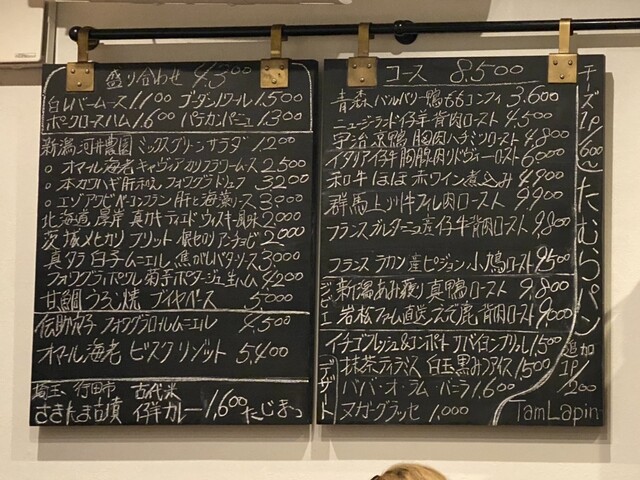 盛り合わせ 4,300
白レバームース 1,100 ゴーダノワール 1,500
ポークロースハム 1,600 パテカンパーニュ 1,300
新潟河田農園 ミックスグリーンサラダ 1,200
オマール海老 キャヴィア カリフラワームース 2,500
本カワハギ 肝 フォワグラ トリュフ 3,200
エゾアワビ コンフラン 肝と海藻ソース 3,000
北海道厚岸 真カキ ティエド ウィスキー風味 2,000
愛媛メヒカリ フリット 根セロリ アンチョビ 2,000
真ダラ白子ムニエル 焦がしバターソース 3,000
フォワグラ ポワレ 菊芋ポタージュ 生ハム 4,200
甘鯛うろこ焼 ブイヤベース 5,000
伝助穴子 フォワグラロール ムニエル 4,500
オマール海老 ビスクリゾット 5,400
埼玉 行田市 古代米
さきたま古墳 仔羊カレー 1,600
コース 8,500
青森バルバリー鴨ももコンフィ 3,600
ニュージーランド仔羊背肉ロースト 4,500
宇治京鴨胸肉ハチミツロースト 4,800
イタリア仔牛胸腺肉リドヴォーロースト 6,000
和牛ほほ赤ワイン煮込み 4,900
群馬上州牛フィレ肉ロースト 9,900
フランスブルターニュ産仔牛背肉ロースト 9,800
フランスラカン産ピジョン小鳩ロースト 9,500
ジビエ
新潟あみ獲り真鴨ロースト 9,800
岩松ファーム直送えぞ鹿背肉ロースト 9,000
デザート
抹茶ティラミス 白玉黒みつアイス 1,500
ババ・オ・ラム・バニラ 1,600
ヌガーグラッセ 1,000
チーズ 1P/600~
たむらパン
追加
1P/
200
TamLapin